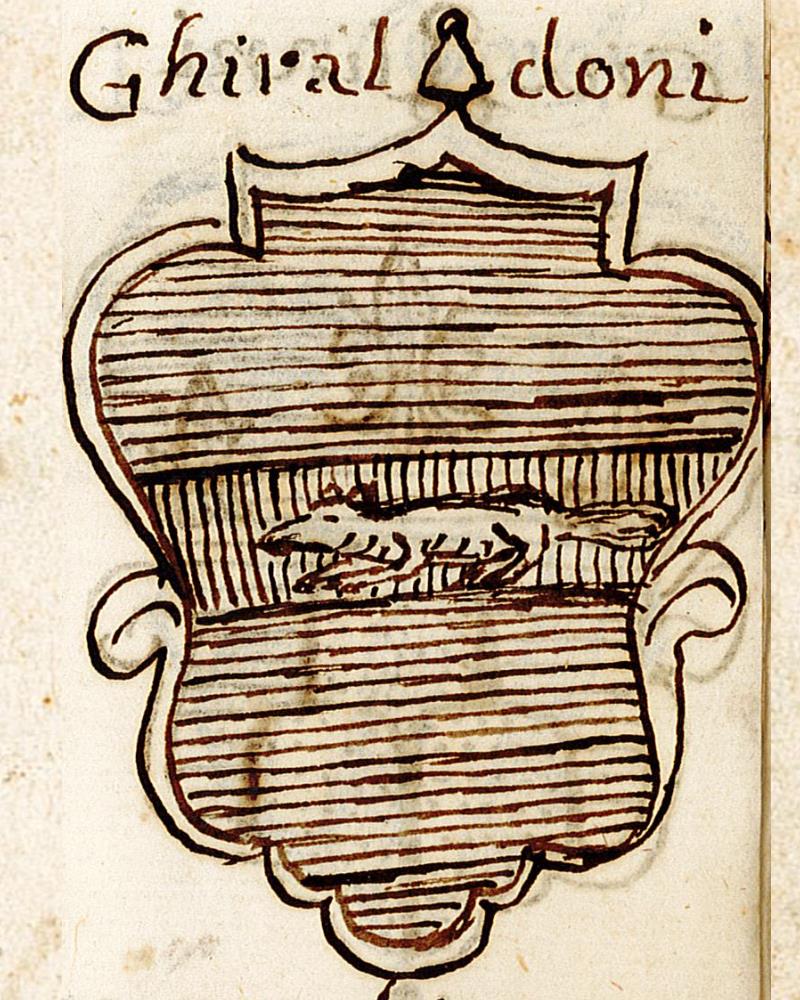 Ghiral doni